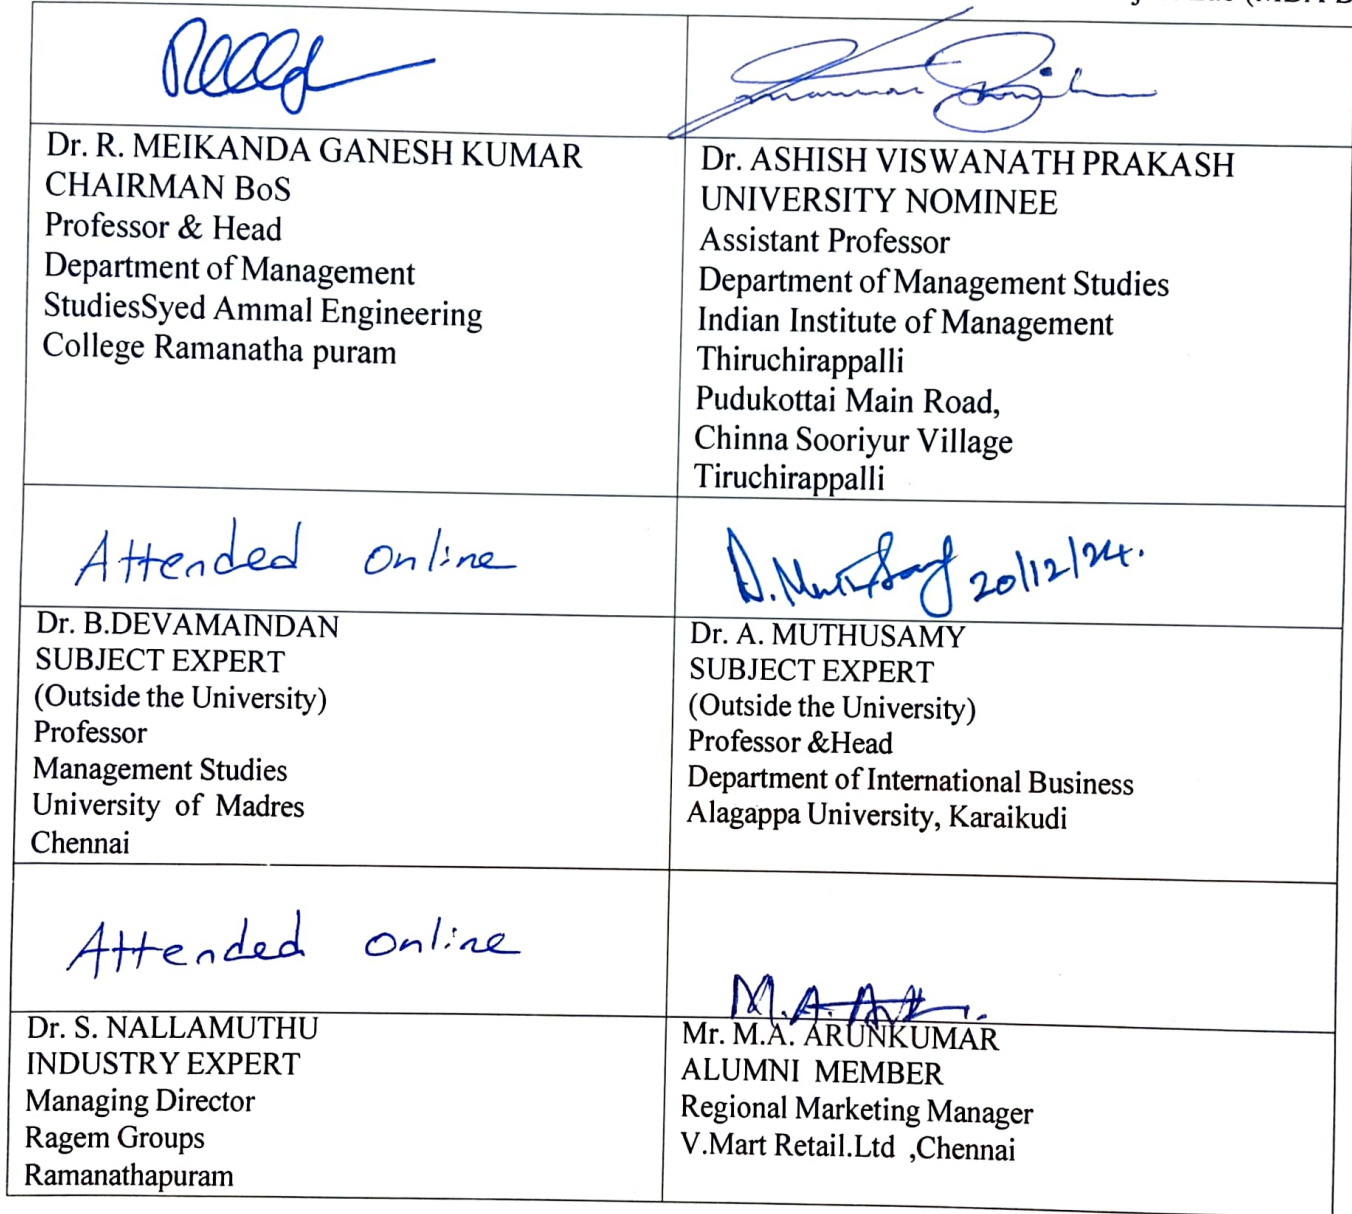 Dr. R. MEIKANDA GANESH KUMAR
CHAIRMAN BoS
Professor & Head
Department of Management
StudiesSyed Ammal Engineering
College Ramanatha puram
Dr. ASHISH VISWANATH PRAKASH
UNIVERSITY NOMINEE
Assistant Professor
Department of Management Studies
Indian Institute of Management
Thiruchirappalli
Pudukottai Main Road,
Chinna Sooriyur Village
Tiruchirappalli
Attended online
20/12/24.
Dr. B.DEVAMAINDAN
SUBJECT EXPERT
(Outside the University)
Professor
Management Studies
University of Madres
Chennai
Dr. A. MUTHUSAMY
SUBJECT EXPERT
(Outside the University)
Professor &Head
Department of International Business
Alagappa University, Karaikudi
Attended online
Dr. S. NALLAMUTHU
INDUSTRY EXPERT
Managing Director
Ragem Groups
Ramanathapuram
Mr. M.A. ARUNKUMAR
ALUMNI MEMBER
Regional Marketing Manager
V.Mart Retail.Ltd ,Chennai